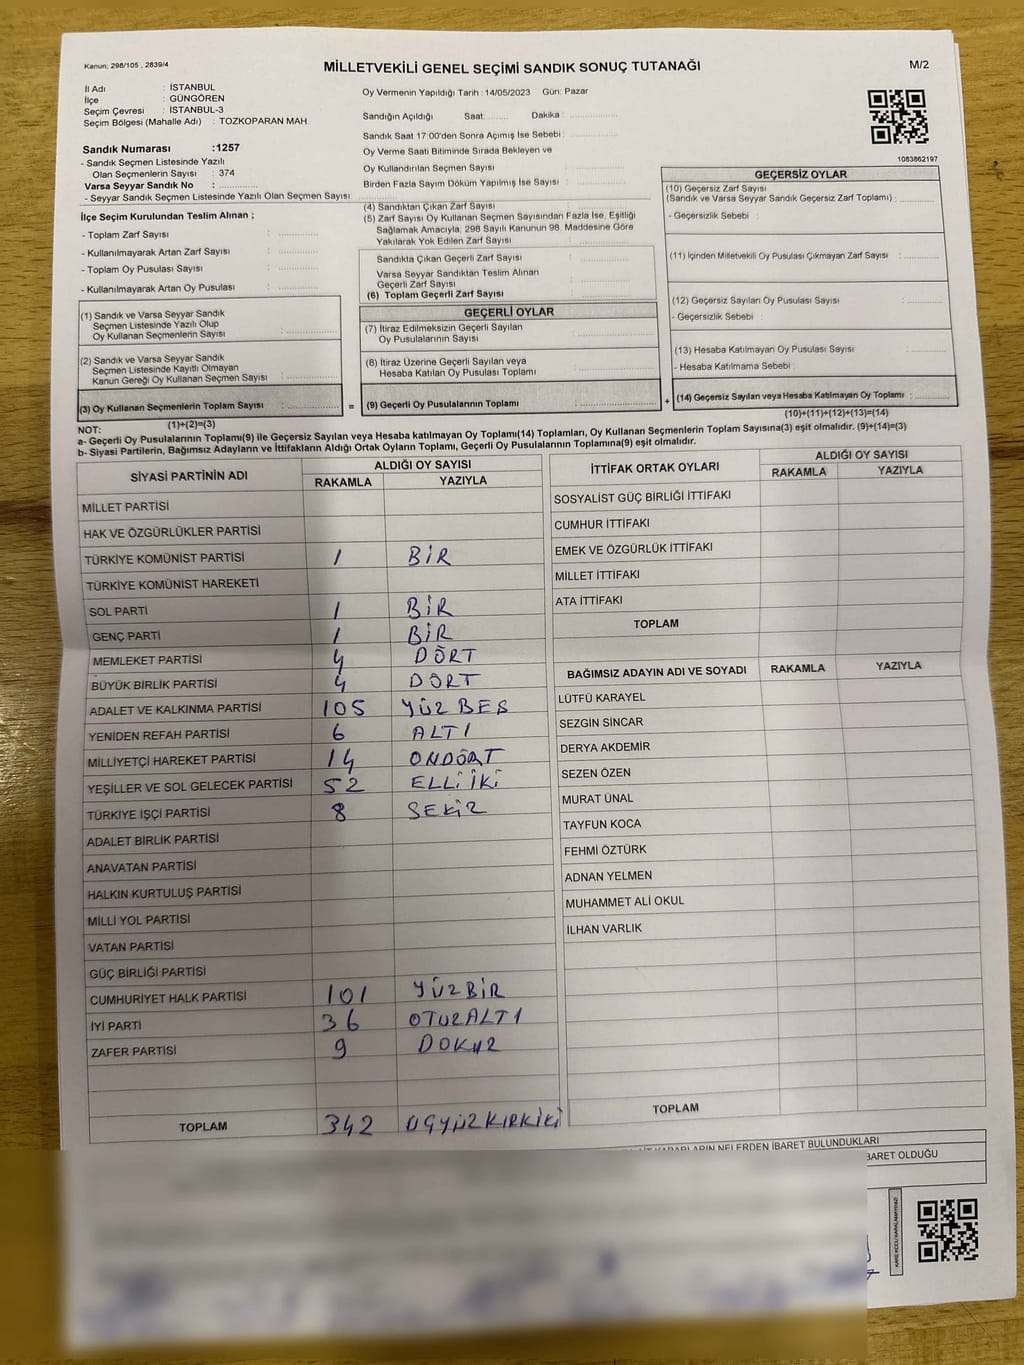 Kanun; 298/105 , 2839/4
MİLLETVEKİLİ GENEL SEÇİMİ SANDIK SONUÇ TUTANAĞI
M/2
İl Adı : İSTANBUL
İlçe : GÜNGÖREN
Seçim Çevresi : İSTANBUL-3
Seçim Bölgesi (Mahalle Adı) : TOZKOPARAN MAH.
Sandık Numarası :1257
- Sandık Seçmen Listesinde Yazılı
Olan Seçmenlerin Sayısı : 374
Varsa Seyyar Sandık No :
- Seyyar Sandık Seçmen Listesinde Yazılı Olan Seçmen Sayısı:
İlçe Seçim Kurulundan Teslim Alınan ;
- Toplam Zarf Sayısı :
- Kullanılmayarak Artan Zarf Sayısı :
- Toplam Oy Pusulası Sayısı :
- Kullanılmayarak Artan Oy Pusulası :
(1) Sandık ve Varsa Seyyar Sandık
Seçmen Listesinde Yazılı Olup
Oy Kullanan Seçmenlerin Sayısı :
(2) Sandık ve Varsa Seyyar Sandık
Seçmen Listesinde Kayıtlı Olmayan
Kanun Gereği Oy Kullanan Seçmen Sayısı :
(3) Oy Kullanan Seçmenlerin Toplam Sayısı :
(1)+(2)=(3)
Oy Vermenin Yapıldığı Tarih : 14/05/2023 Gün: Pazar
Sandığın Açıldığı Saat: Dakika :
Sandık Saat 17:00'den Sonra Açımış İse Sebebi :
Oy Verme Saati Bitiminde Sırada Bekleyen ve
Oy Kullandırılan Seçmen Sayısı :
Birden Fazla Sayım Döküm Yapılmış İse Sayısı :
(4) Sandıktan Çıkan Zarf Sayısı :
(5) Zarf Sayısı Oy Kullanan Seçmen Sayısından Fazla İse, Eşitliği
Sağlamak Amacıyla, 298 Sayılı Kanunun 98. Maddesine Göre
Yakılarak Yok Edilen Zarf Sayısı :
Sandıkta Çıkan Geçerli Zarf Sayısı :
Varsa Seyyar Sandıktan Teslim Alınan
Geçerli Zarf Sayısı :
(6) Toplam Geçerli Zarf Sayısı :
GEÇERLİ OYLAR
(7) İtiraz Edilmeksizin Geçerli Sayılan
Oy Pusulalarının Sayısı :
(8) İtiraz Üzerine Geçerli Sayılan veya
Hesaba Katılan Oy Pusulası Toplamı :
= (9) Geçerli Oy Pusulalarının Toplamı :
1083862197
GEÇERSİZ OYLAR
(10) Geçersiz Zarf Sayısı
(Sandık ve Varsa Seyyar Sandık Geçersiz Zarf Toplamı) :
- Geçersizlik Sebebi :
(11) İçinden Milletvekili Oy Pusulası Çıkmayan Zarf Sayısı :
(12) Geçersiz Sayılan Oy Pusulası Sayısı :
- Geçersizlik Sebebi :
(13) Hesaba Katılmayan Oy Pusulası Sayısı :
- Hesaba Katılmama Sebebi :
+ (14) Geçersiz Sayılan veya Hesaba Katılmayan Oy Toplamı :
(10)+(11)+(12)+(13)=(14)
NOT:
a- Geçerli Oy Pusulalarının Toplamı(9) ile Geçersiz Sayılan veya Hesaba katılmayan Oy Toplamı(14) Toplamları, Oy Kullanan Seçmenlerin Toplam Sayısına(3) eşit olmalıdır. (9)+(14)=(3)
b- Siyasi Partilerin, Bağımsız Adayların ve İttifakların Aldığı Ortak Oyların Toplamı, Geçerli Oy Pusulalarının Toplamına(9) eşit olmalıdır.
SİYASİ PARTİNİN ADI
ALDIĞI OY SAYISI
RAKAMLA YAZIYLA
MİLLET PARTİSİ
HAK VE ÖZGÜRLÜKLER PARTİSİ
TÜRKİYE KOMÜNİST PARTİSİ 1 BİR
TÜRKİYE KOMÜNİST HAREKETİ
SOL PARTİ 1 BİR
GENÇ PARTİ 1 BİR
MEMLEKET PARTİSİ 4 DÖRT
BÜYÜK BİRLİK PARTİSİ 4 DÖRT
ADALET VE KALKINMA PARTİSİ 105 YÜZ BES
YENİDEN REFAH PARTİSİ 6 ALTI
MİLLİYETÇİ HAREKET PARTİSİ 14 ONDÖRT
YEŞİLLER VE SOL GELECEK PARTİSİ 52 ELLİ İKİ
TÜRKİYE İŞÇİ PARTİSİ 8 SEKİZ
ADALET BİRLİK PARTİSİ
ANAVATAN PARTİSİ
HALKIN KURTULUŞ PARTİSİ
MİLLİ YOL PARTİSİ
VATAN PARTİSİ
GÜÇ BİRLİĞİ PARTİSİ
CUMHURİYET HALK PARTİSİ 101 YÜZBİR
İYİ PARTİ 36 OTUZALTI
ZAFER PARTİSİ 9 DOKUZ
TOPLAM 342 ÜÇYÜZKIRKİKİ
İTTİFAK ORTAK OYLARI
ALDIĞI OY SAYISI
RAKAMLA YAZIYLA
SOSYALİST GÜÇ BİRLİĞİ İTTİFAKI
CUMHUR İTTİFAKI
EMEK VE ÖZGÜRLÜK İTTİFAKI
MİLLET İTTİFAKI
ATA İTTİFAKI
TOPLAM
BAĞIMSIZ ADAYIN ADI VE SOYADI RAKAMLA YAZIYLA
LÜTFÜ KARAYEL
SEZGİN SİNCAR
DERYA AKDEMİR
SEZEN ÖZEN
MURAT ÜNAL
TAYFUN KOCA
FEHMİ ÖZTÜRK
ADNAN YELMEN
MUHAMMET ALİ OKUL
İLHAN VARLIK
TOPLAM
KARARLARIN NELERDEN İBARET BULUNDUKLARI
BARET OLDUĞU